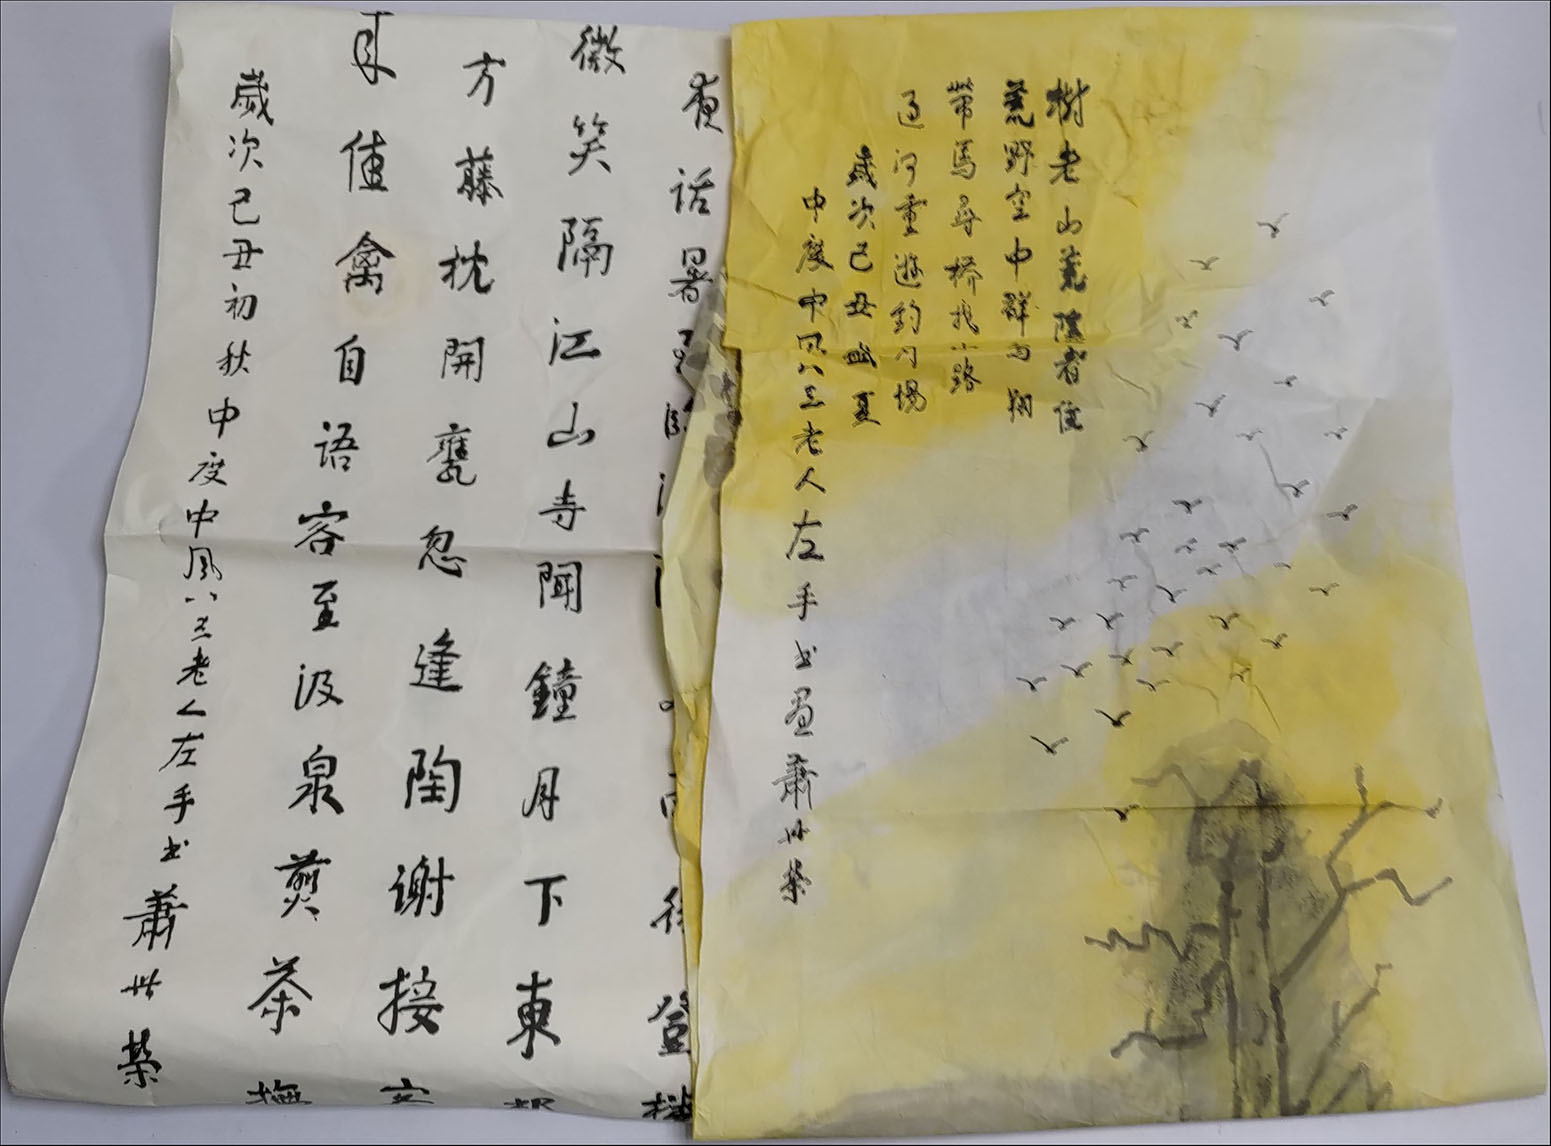 樹老山荒隱者住
荒野空中群翔
帶馬尋橋找小路
过河重遊釣場
歲次己丑盛夏
中度中风八三老人左手书畫蕭世榮
夜话暑登
微笑隔江山寺聞鐘月下東
方藤枕開甕忽逢陶谢接
值禽自语客至汲泉煎茶撫
歲次己丑初秋中度中风八三老人左手书蕭世榮